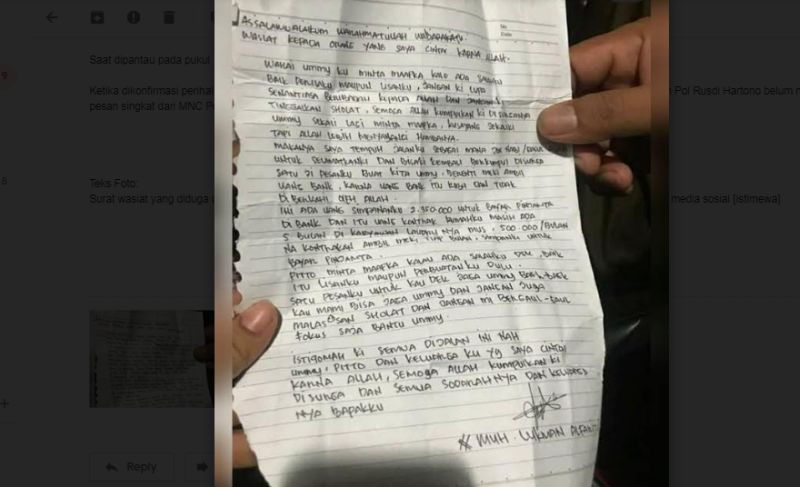 Saat dipantau pada pukul
Ketika dikonfirmasi perihal
Pol Rusdi Hartono belum
pesan singkat dari MNC
Teks Foto:
Surat wasiat yang diduga
media sosial [istimewa]
Reply
9
8
No
Date
ASSALAMUALAIKUM WARAHMATULLAH WABARAKATU.
WASIAT KEPADA ORANG YANG SAYA CINTAI KARNA ALLAH.
WAHAI UMMY KU MINTA MAAFKA KALO ADA SALAHKU
BAIK PERILAKU MAUPUN LISANKU, JANGAN KI LUPA
SENANTIASA BERIBADAH KEPADA ALLAH DAN JANGANKI
TINGGALKAN SHOLAT, SEMOGA ALLAH KUMPULKAN KI DI
UMMY SEKALI LAGI MINTA MAAFKA, KUSAYANG SEKALIKI
TAPI ALLAH LEBIH MENYAYANGI HAMBANYA.
MAKANYA SAYA TEMPUH JALANKU SEBAGAI MANA JALAN
UNTUK SELAMATKANKI DAN BISAKI KEMBALI BERKUMPUL DISURGA
SATU JI PESANKU BUAT KITA UMMY, BERENTI MEKI AMBIL
UANG BANK, KARNA UANG BANK ITU RIBA DAN TIDAK
DIBERKAHI OLEH ALLAH.
INI ADA UANG SIMPANANKU 2.350.000 UNTUK BAYAR PINJAMTA
DI BANK DAN ITU UANG KONTRAK RUMAHKU MASIH ADA
5 BULAN DI KARYAWAN LAUNDRYNYA MUS, 500.000/BULAN
NA KONTRAKAN AMBIL MEKI UNTUK
BAYAR PINJAMTA.
PITTO MINTA MAAFKA KALAU ADA SALAHKU DEK, BAIK
ITU LISANKU MAUPUN PERBUATANKU DULU.
SATU PESANKU UNTUK KAU DEK JAGA UMMY BAIK-BAIK
KAU MAMI BISA JAGA UMMY DAN JANGAN JUGA
MALAS SAN SHOLAT DAN JANGAN MI BERGAUL-GAUL
FOKUS SAJA BANTU UMMY.
ISTIQOMAH KI SEMUA DIJALAN INI NAH
UMMY, PITTO DAN KELUARGA KU YG SAYA CINTAI
KARNA ALLAH, SEMOGA ALLAH KUMPULKAN KI
DISURGA DAN SEMUA SODARAHNYA DAN KELUARGA
NYA BAPAKKU
MUH. LUKMAN ALFARIZI